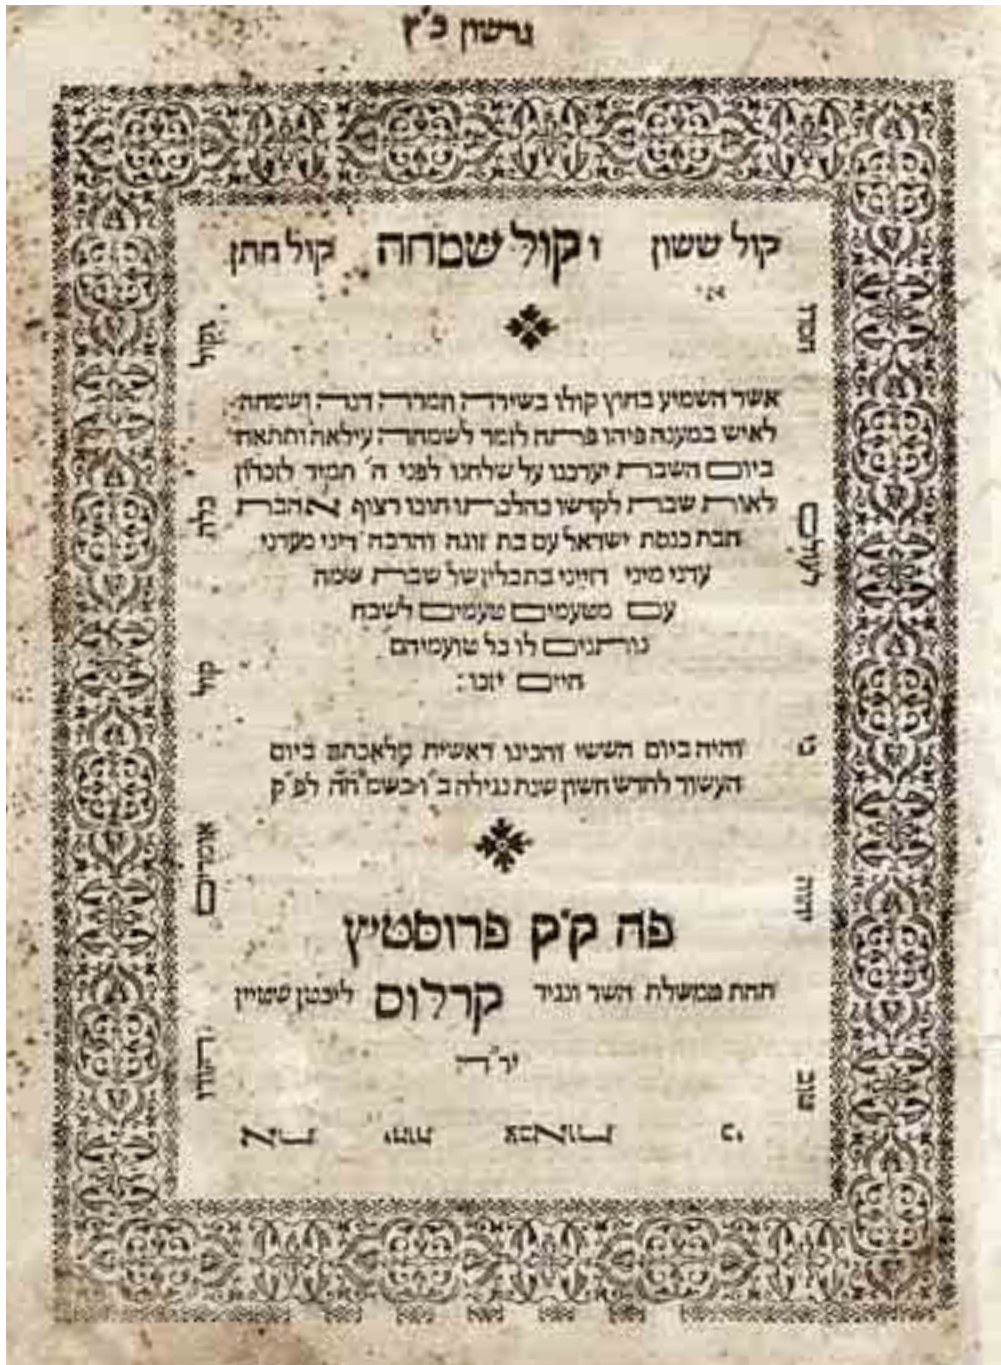 גרשון כ״ץ
קול ששון וקול שמחה קול חתן
וקול
כלה
קול
אומרים
הודו
את
יהוה
צבאות
כי
טוב
יהוה
כי
לעולם
חסדו
אשר השמיע בחוץ קולו בשירה חמדה דנה ושמחה
לאיש במענה פיהו פתח לומר לשמחה עילאה ותתאה
ביום השבת יערכנו על שלחנו לפני ה׳ תמיד לזכרון
לאורת שבת לקדשו כהלכתו תוכו רצוף אהבת
חבת כנסת ישראל עם בת זוגה והרבה דיני מעדני
עדני מיני בתבלין של שבת שמה
עם מטעמים טעמים לשבח
נותנים לו כל טועמיהם
חיים יזכו׃
והיה ביום הששי והכינו ראשית מלאכתם ביום
העשור לחדש חשון שנת נגילה ב״ו בשמ״חה לפ״ק
פה ק״ק פרוסטיץ
תחת ממשלת השר ונגיד קרלוס ליכטן שטיין
יר״ה